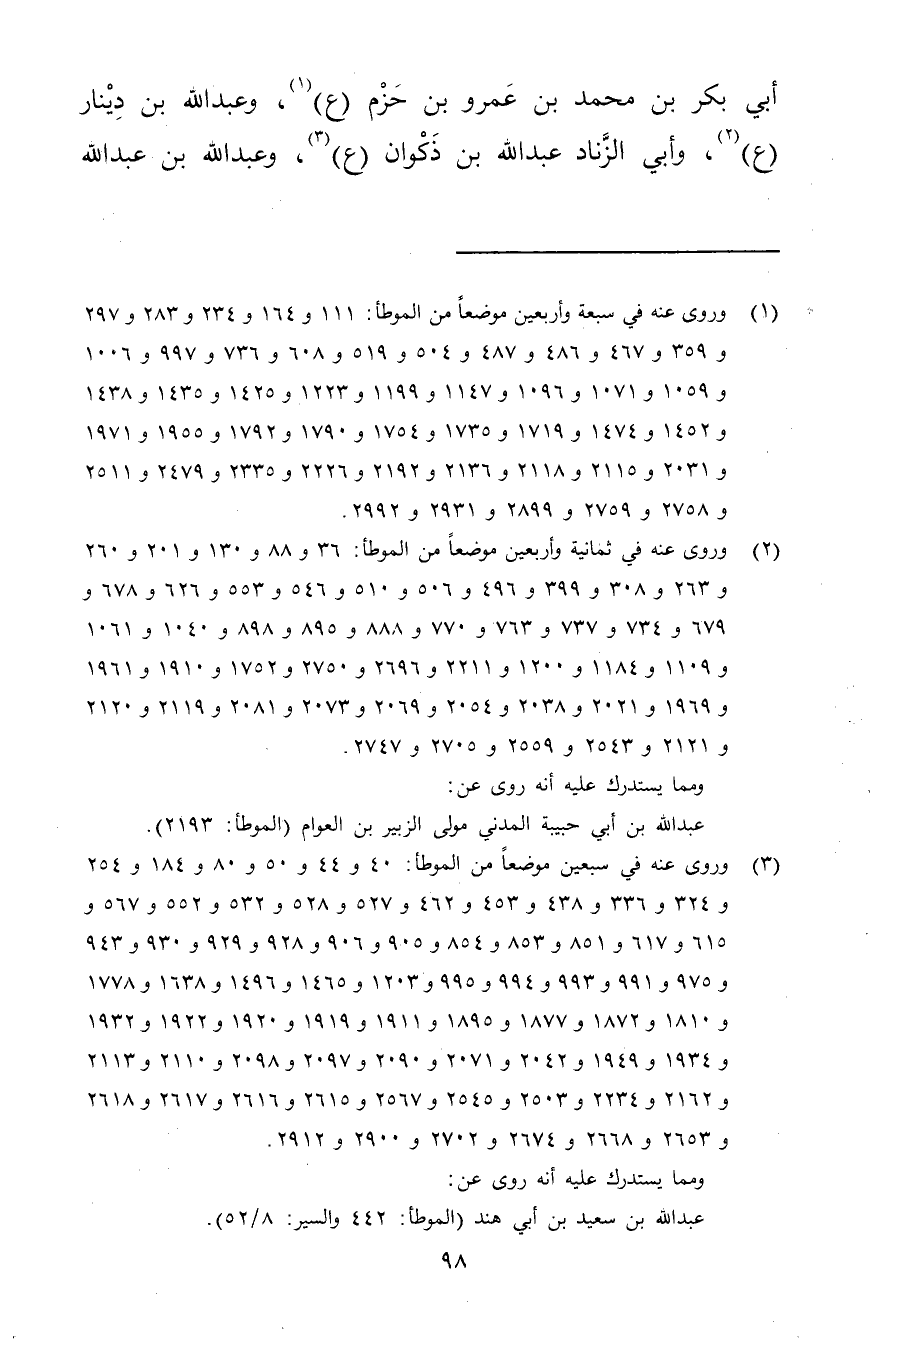 أبي بكر بن محمد بن عَمرو بن حَزْم (ع)(١)، وعبدالله بن دِيْنار
(ع)(٢)، وأبي الزَّناد عبدالله بن ذَكْوان (ع)(٣)، وعبدالله بن عبدالله
(١) وروى عنه في سبعة وأربعين موضعاً من الموطأ: ١١١ و ١٦٤ و ٢٣٤ و ٢٨٣ و ٢٩٧
و ٣٥٩ و ٤٦٧ و ٤٨٦ و ٤٨٧ و ٥٠٤ و ٥١٩ و ٦٠٨ و ٧٣٦ و ٩٩٧ و ١٠٠٦
و ١٠٥٩ و ١٠٧١ و ١٠٩٦ و ١١٤٧ و ١١٩٩ و ١٢٢٣ و ١٤٢٥ و ١٤٣٥ و ١٤٣٨
و ١٤٥٢ و ١٤٧٤ و ١٧١٩ و ١٧٣٥ و ١٧٥٤ و ١٧٩٠ و ١٧٩٢ و ١٩٥٥ و ١٩٧١
و ٢٠٣١ و ٢١١٥ و ٢١١٨ و ٢١٣٦ و ٢١٩٢ و ٢٢٢٦ و ٢٣٣٥ و ٢٤٧٩ و ٢٥١١
و ٢٧٥٨ و ٢٧٥٩ و ٢٨٩٩ و ٢٩٣١ و ٢٩٩٢.
(٢) وروى عنه في ثمانية وأربعين موضعاً من الموطأ: ٣٦ و ٨٨ و ١٣٠ و ٢٠١ و ٢٦٠
و ٢٦٣ و ٣٠٨ و ٣٩٩ و ٤٩٦ و ٥٠٦ و ٥١٠ و ٥٤٦ و ٥٥٣ و ٦٢٦ و ٦٧٨ و
٦٧٩ و ٧٣٤ و ٧٣٧ و ٧٦٣ و ٧٧٠ و ٨٨٨ و ٨٩٥ و ٨٩٨ و ١٠٤٠ و ١٠٦١
و ١١٠٩ و ١١٨٤ و ١٢٠٠ و ٢٢١١ و ٢٦٩٦ و ٢٧٥٠ و ١٧٥٢ و ١٩١٠ و ١٩٦١
و ١٩٦٩ و ٢٠٢١ و ٢٠٣٨ و ٢٠٥٤ و ٢٠٦٩ و ٢٠٧٣ و ٢٠٨١ و ٢١١٩ و ٢١٢٠
و ٢١٢١ و ٢٥٤٣ و ٢٥٥٩ و ٢٧٠٥ و ٢٧٤٧.
ومما يستدرك عليه أنه روى عن:
عبدالله بن أبي حبيبة المدني مولى الزبير بن العوام (الموطأ: ٢١٩٣).
(٣) وروى عنه في سبعين موضعاً من الموطأ: ٤٠ و ٤٤ و ٥٠ و ٨٠ و ١٨٤ و ٢٥٤
و ٣٢٤ و ٣٣٦ و ٤٣٨ و ٤٥٣ و ٤٦٢ و ٥٢٧ و ٥٢٨ و ٥٣٢ و ٥٥٢ و ٥٦٧ و
٦١٥ و ٦١٧ و ٨٥١ و ٨٥٣ و ٨٥٤ و ٩٠٥ و ٩٠٦ و ٩٢٨ و ٩٢٩ و ٩٣٠ و ٩٤٣
و ٩٧٥ و ٩٩١ و ٩٩٣ و ٩٩٤ و ٩٩٥ و ١٢٠٣ و ١٤٦٥ و ١٤٩٦ و ١٦٣٨ و ١٧٧٨
و ١٨١٠ و ١٨٧٢ و ١٨٧٧ و ١٨٩٥ و ١٩١١ و ١٩١٩ و ١٩٢٠ و ١٩٢٢ و ١٩٣٢
و ١٩٣٤ و ١٩٤٩ و ٢٠٤٢ و ٢٠٧١ و ٢٠٩٠ و ٢٠٩٧ و ٢٠٩٨ و ٢١١٠ و ٢١١٣
و ٢١٦٢ و ٢٢٣٤ و ٢٥٠٣ و ٢٥٤٥ و ٢٥٦٧ و ٢٦١٥ و ٢٦١٦ و ٢٦١٧ و ٢٦١٨
و ٢٦٥٣ و ٢٦٦٨ و ٢٦٧٤ و ٢٧٠٢ و ٢٩٠٠ و ٢٩١٢.
ومما يستدرك عليه أنه روى عن:
عبدالله بن سعيد بن أبي هند (الموطأ: ٤٤٢ والسير: ٥٢/٨).
٩٨